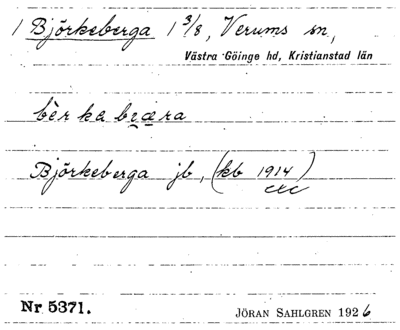 1 Björkeberga 1 3/8, Verums sn,
Västra Göinge hd, Kristianstad län
bèr ka bɛ̀æra
Björkeberga jb, (kb 1914)
Nr 5371. JÖRAN SAHLGREN 1926